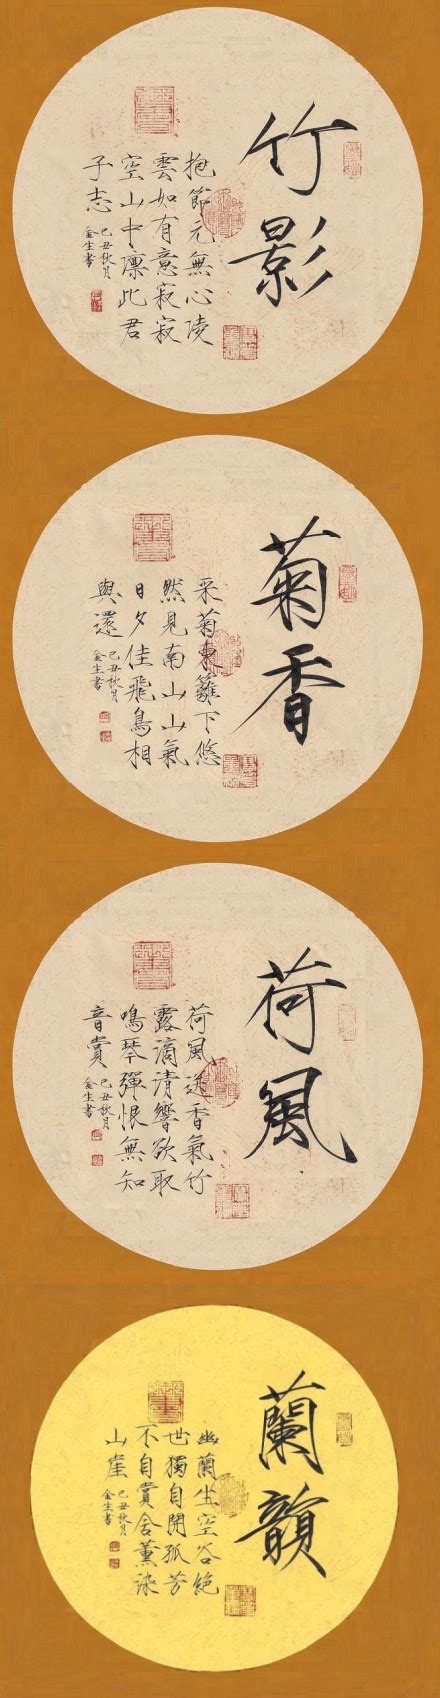 竹影
抱節元無心陵
雲如有意寂寂
空山中凛此君
子志
己丑秋月
金生書
菊香
采菊東籬下悠
然見南山山氣
日夕佳飛鳥相
與還
己丑秋月
金生書
荷風
荷風送香氣竹
露滴清響欲取
鳴琴彈恨無知
音賞
己丑秋月
金生書
蘭韻
幽蘭生空谷絶
世獨自開孤芳
不自賞舍薰染
山崖
己丑秋月
金生書